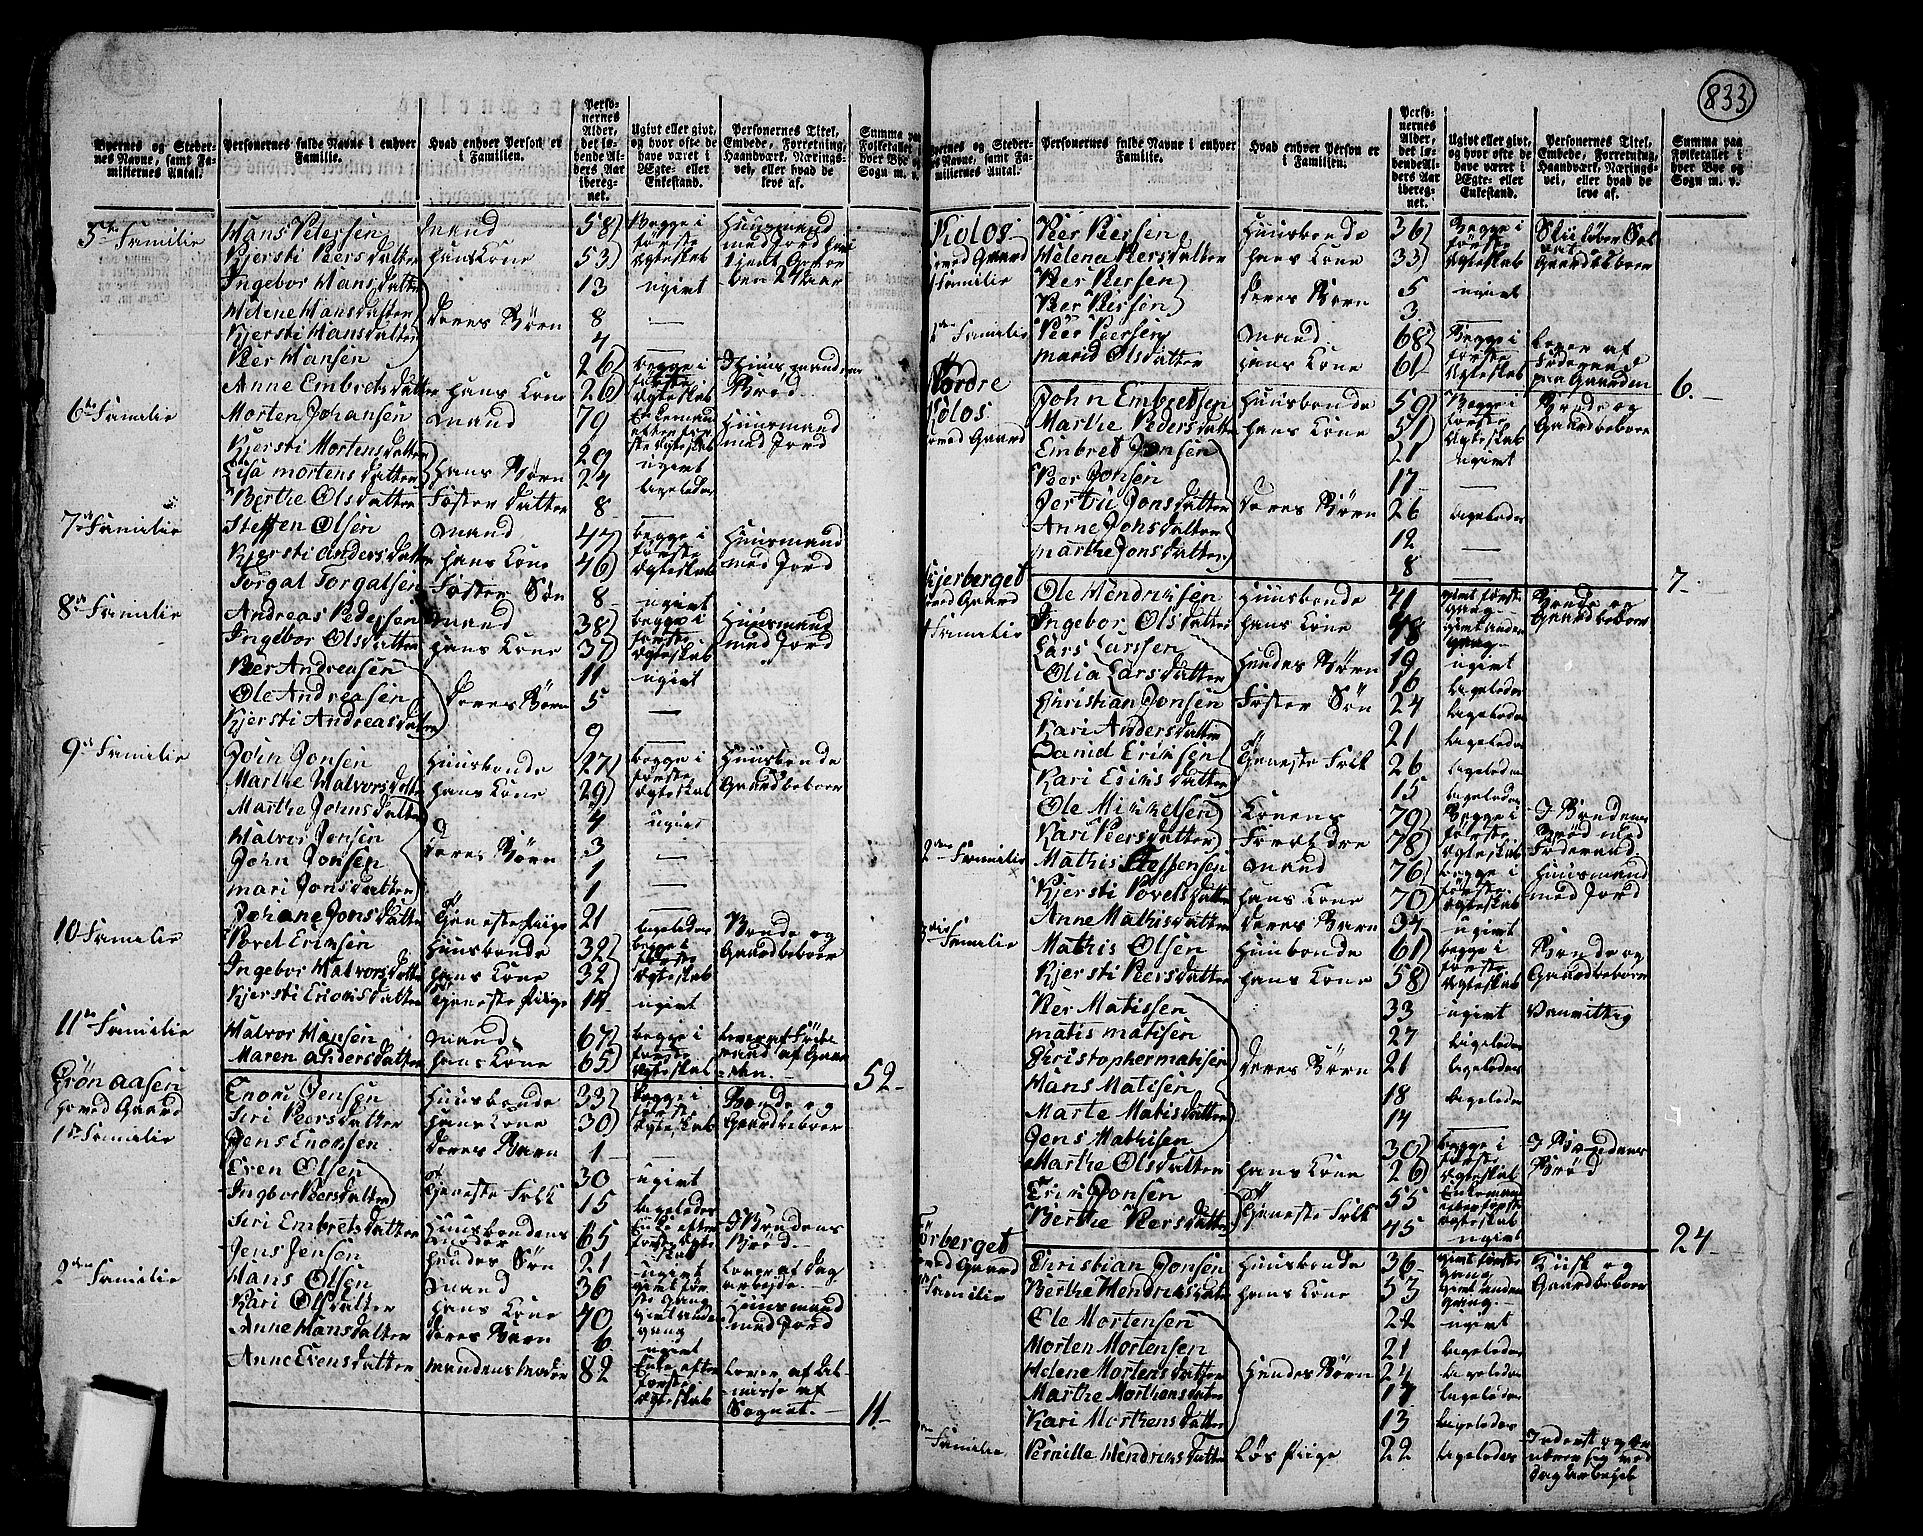 833
Byernes og Steder-
nes Navne, samt Fa-
miliernes Antal.
Personernes fulde Navne i enhver
Familie.
Hvad enhver Person er
i Familien.
Perso-
nernes
Alder,
det lø-
bende Al-
ders Aar
ibereg-
net.
Ugivt eller givt,
og hvor ofte de
have været i
Ægte- eller
Enkestand.
Personernes Titel,
Embede, Forretning,
Haandværk, Nærings-
vei, eller hvad de
leve af.
Summa paa
Folketallet i
hver Bye og
Sogn m. v.
5te Familie Hans Petersen Mand 58 Begge i første Ægteskab Huusmand med Jord
Kjersti Peersdatter Hans Kone 53
Ingebor Hansdatter 13 ugivt
Helene Hansdatter Deres Børn 8 —
Kjersti Hansdatter 4 —
Peer Hansen 26 begge i første Ægteskab Brød
Anne Embretsdatter Hans Kone 26
6te Familie Morten Johansen Mand 79 Enkemand efter første Ægteskab Huusmand med Jord
Kjersti Mortensdatter 29 ugivt
Lisa Mortensdatter Hans Børn 24 ligeledes
Berthe Olsdatter Foster Datter 8 —
7de Familie Steffen Olsen Mand 47 begge i første Ægteskab Huusmand med Jord
Kjersti Andersdatter Hans Kone 46
Torgal Torgalsen Foster Søn 8 ugivt
8de Familie Andreas Pedersen Mand 38 begge i første Ægteskab Huusmand med Jord
Ingebor Olsdatter Hans Kone 37
Peer Andreasen 11 ugivt
Ole Andreasen Deres Børn 5 —
Kjersti Andreasdatter 9 —
9de Familie John Jonsen Huusbonde 27 begge i første Ægteskab Huusbonde Gaardbeboer
Marthe Halvorsdatter Hans Kone 29
Marthe Johnsdatter 4 ugivt
Halvor Jonsen Deres Børn 3 —
John Jonsen 1 —
Mari Jonsdatter 1 —
Johane Jonsdatter Tjeneste Piige 21 ligeledes
10 Familie Povel Eriksen Huusbonde 32 begge i første Ægteskab Bonde og Gaardbeboer
Ingebor Halvorsdatter Hans Kone 32
Kjersti Eriksdatter Tjeneste Piige 14 ugivt
11te Familie Halvor Hansen Mand 67 begge i første Ægteskab
Maren Andersdatter Hans Kone 65
52
Grönaasen
Hoved Gaard
1te Familie Enor Jensen Huusbonde 33 begge i første Ægteskab Bonde og Gaardbeboer
Siri Peersdatter Hans Kone 30
Jens Enorsen Deres Barn 1 —
Even Olsen Tjeneste Folk 30 ugivt
Ingbor Peersdatter 15 ligeledes
Siri Embretsdatter Huusbondens Moder 65 Enke efter første Ægteskab I Bondens Brød
Jens Jensen Hendes Søn 21 ugivt
2den Familie Hans Olsen Mand 36 Huusmand med Jord
Kari Olsdatter Hans Kone 40
Anne Hansdatter Deres Barn 6 ugivt
Anne Evensdatter Mandens Moder 82 Enke efter første Ægteskab Lever af Almisse af Sognet
11
Byernes og Steder-
nes Navne, samt Fa-
miliernes Antal.
Personernes fulde Navne i enhver
Familie.
Hvad enhver Person er
i Familien.
Perso-
nernes
Alder,
det lø-
bende Al-
ders Aar
ibereg-
net.
Ugivt eller givt,
og hvor ofte de
have været i
Ægte- eller
Enkestand.
Personernes Titel,
Embede, Forretning,
Haandværk, Nærings-
vei, eller hvad de
leve af.
Summa paa
Folketallet i
hver Bye og
Sogn m. v.
Kolos
Hoved Gaard
1 Familie Peer Peersen Huusbonde 36 Begge i første Ægteskab Gaardbeboer
Helena Peersdatter Hans Kone 33
Peer Peersen Deres Børn 5 ugivt
Peer Peersen 3 —
2den Familie Peer Peersen Mand 68 Begge i første Ægteskab Lever af Føderaad paa Gaarden
Marid Olsdatter Hans Kone 61
6
Nordre
Kolos
Hoved Gaard John Embretsen Huusbonde 59 Begge i første Ægteskab Bonde og Gaardbeboer
Marthe Pedersdatter Hans Kone 51
Embret Jonsen 21 ugivt
Peer Jonsen 17 —
Jertru Jonsdatter Deres Børn 26 ligeledes
Anne Jonsdatter 12 —
Marthe Jonsdatter 8 —
7
Kjerberget
Hoved Gaard
1 Familie Ole Hendriksen Huusbonde 41 givt første gang Bonde og Gaardbeboer
Ingebor Olsdatter Hans Kone 48 givt anden gang
Lars Larssen Hendes Børn 19 ugivt
Olia Larsdatter 16 ligeledes
Christian Jonsen Foster Søn 24 ligeledes
Kari Andersdatter 21 ligeledes
Danid Eriksen Tjeneste Folk 26 ligeledes
Kari Eriksdatter 15 ligeledes
Ole Mikkelsen Konens Forældre 79 Begge i første Ægteskab I Bondens Brød med Føderaad
Kari Peersdatter 78
2den Familie Mathis Steffensen Mand 76 begge i første Ægteskab Huusmand med Jord
Kjersti Povelsdatter Hans Kone 70
Anne Mathisdatter Deres Barn 34 ugivt
3die Familie Mathis Olsen Huusbonde 61 begge i første Ægteskab Bonde og Gaardbeboer
Kjersti Peersdatter Hans Kone 58
Peer Matissen 33 ugivt Vanvittig
Matis Matisen 27 ligeledes
Christopher Matisen Deres Børn 21 ligeledes
Hans Matisen 18 ligeledes
Marte Matisdatter 14
Jens Mathisen 30 begge i første Ægteskab I Bondens Brød
Marthe Olsdatter Hans Kone 26
Erik Jonsen Tjeneste Folk 55 Enkemand efter første Ægteskab
Berthe Peersdatter 45 ugivt
24
Förberget
Hoved Gaard
1te Familie Christian Jonsen Huusbonde 36 givt første gang Gaardbeboer
Berthe Hendriksdatter Hans Kone 53 givt anden gang
Ole Mortensen 22 ugivt
Morten Mortensen 21 ligeledes
Helene Mortensdatter Hendes Børn 24 ligeledes
Marthe Morthensdatter 17 ligeledes
Kari Morthensdatter 13 ligeledes
2den Familie Pernille Hendriksdatter Løs Piige 22 ligeledes